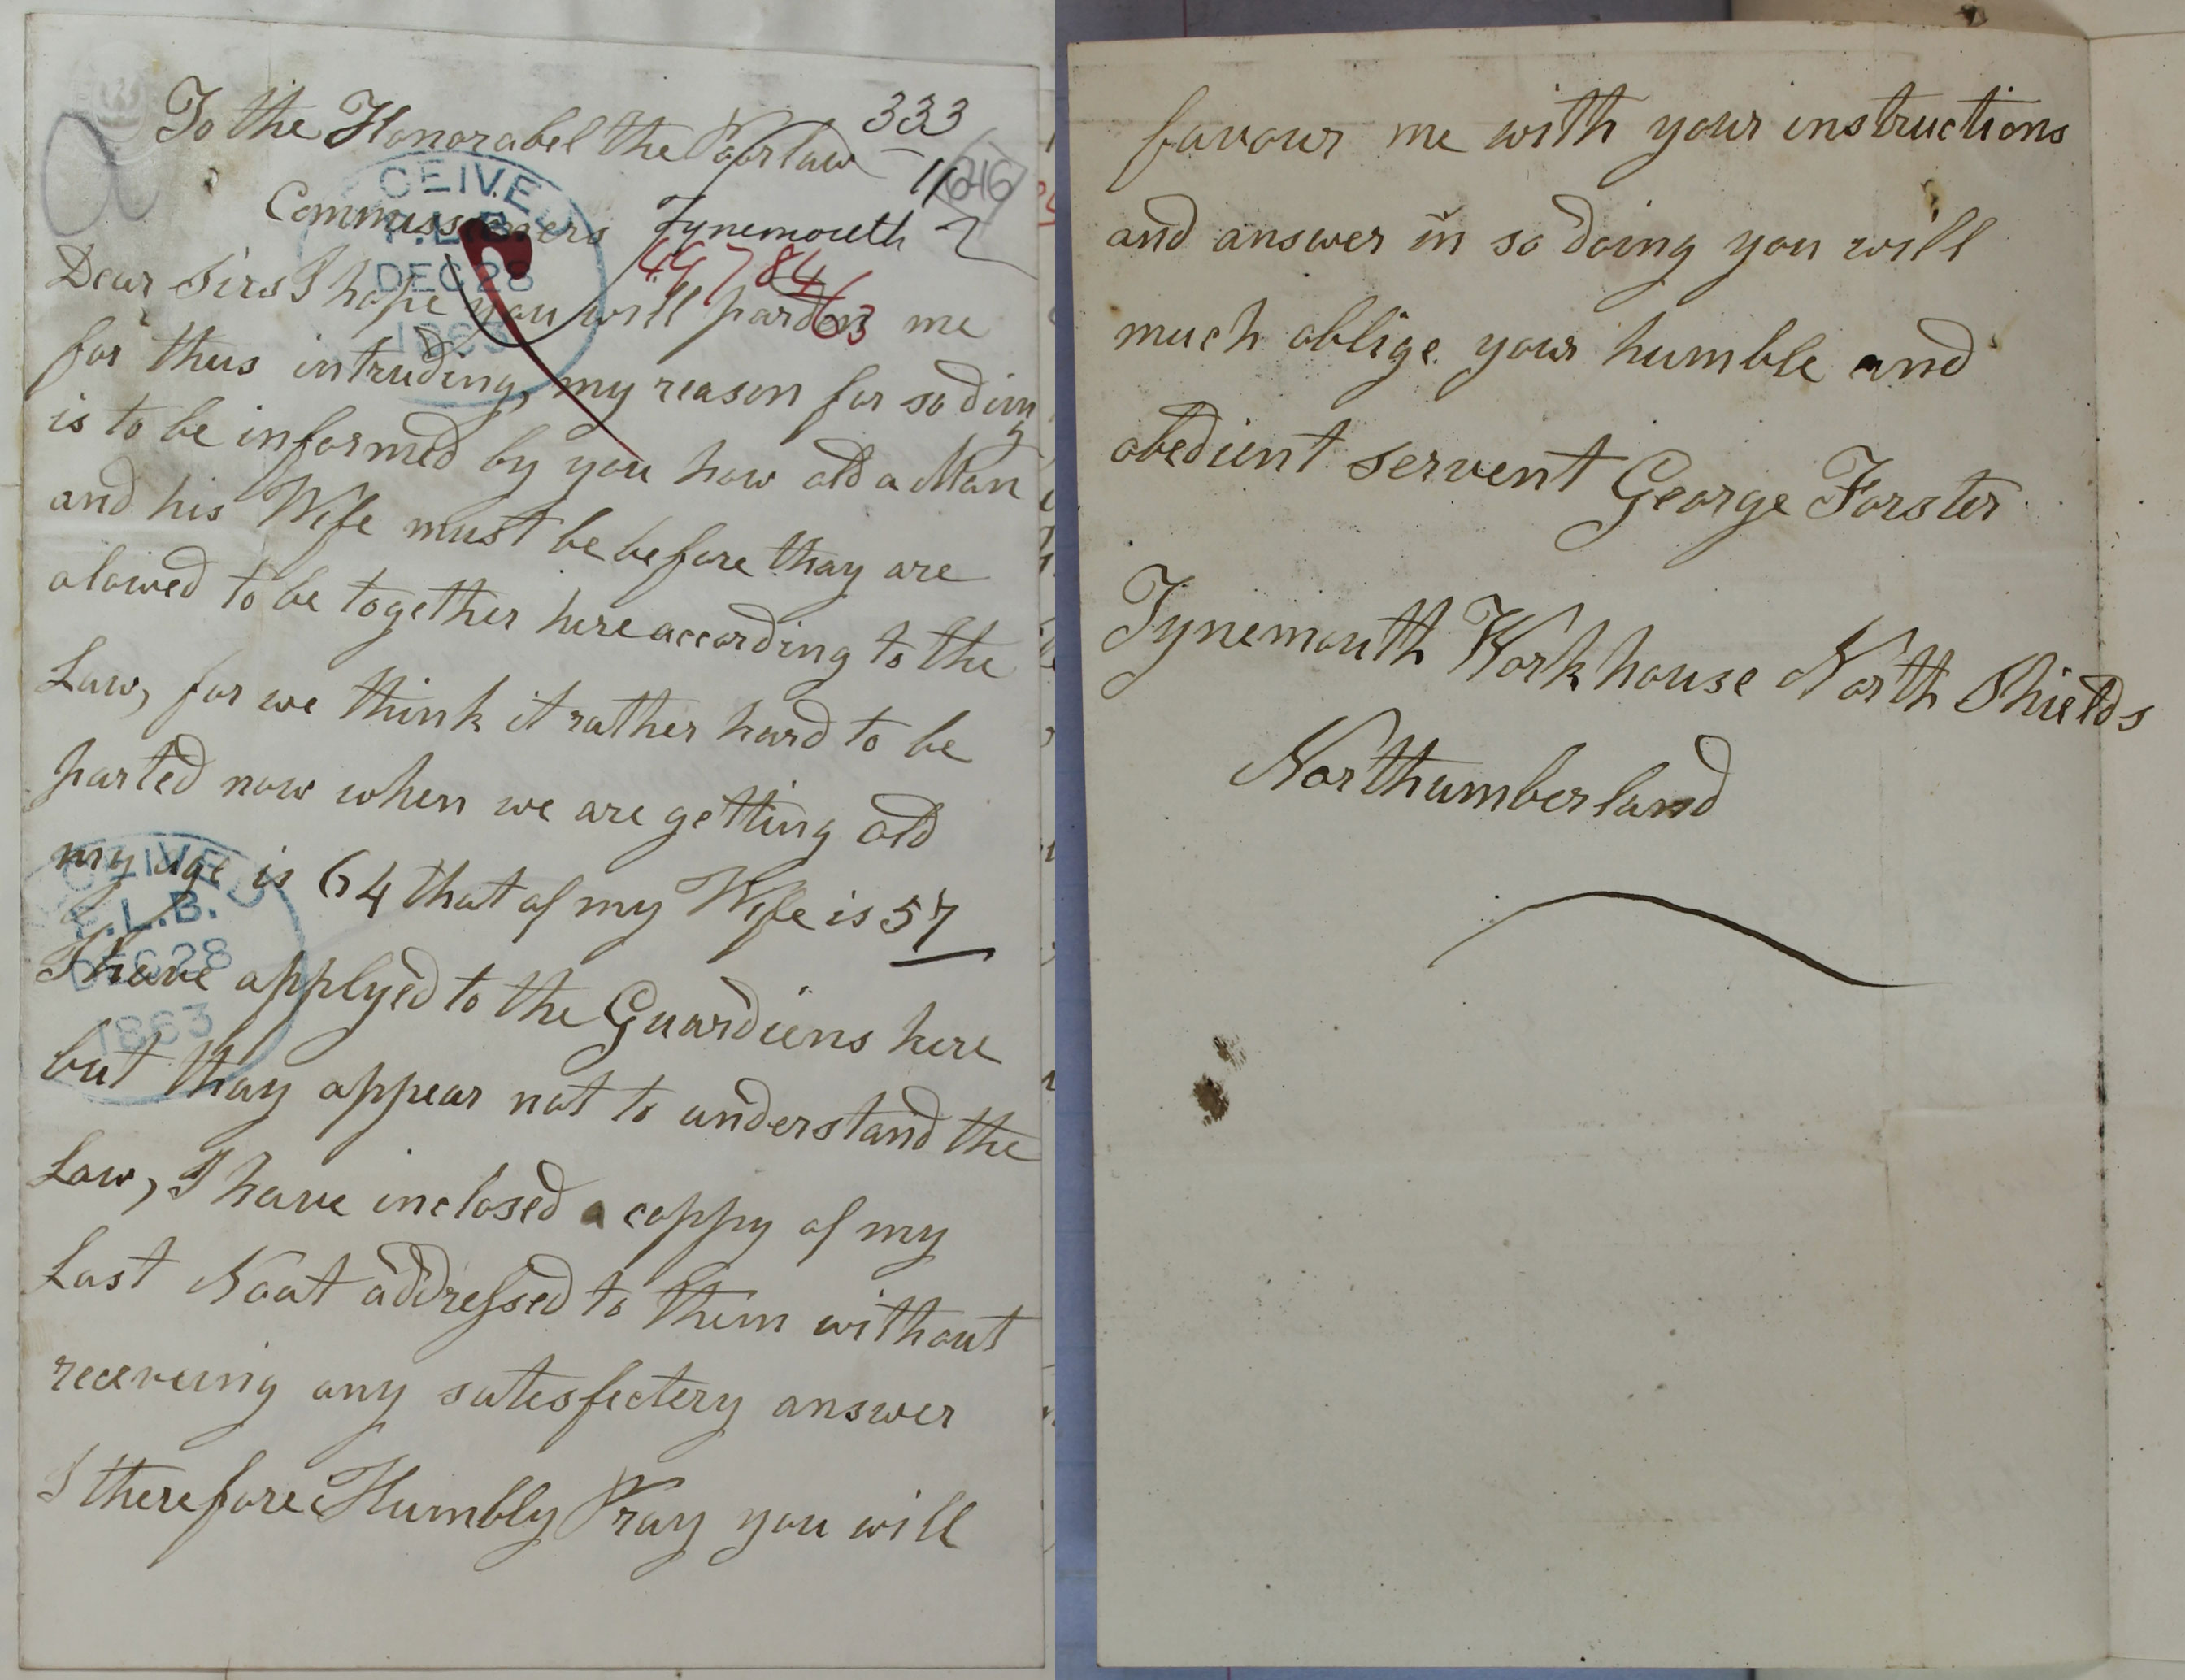 333
To the Honorabel the Poorlaw
Commissioners Tynemouth
49784
63
RECEIVED
P.L.B.
DEC 28
1863
Dear Sirs I hope you will parden me
for thus intruding, my reason for so doing
is to be informed by you how old a Man
and his Wife must be before thay are
alowed to be together here according to the
Law, for we think it rather hard to be
parted now when we are getting old
my age is 64 that of my Wife is 57
CEIVED
P.L.B.
DEC 28
1863
I have applyed to the Guardiens here
but thay appear not to understand the
Law, I have inclosed a coppy of my
Last Noat addressed to them without
receveing any satesfectery answer
I therefore Humbly Pray you will
favour me with your instructions
and answer in so doing you will
much oblige your humble and
obedient servent George Forster
Tynemouth Workhouse North Shields
Northumberland